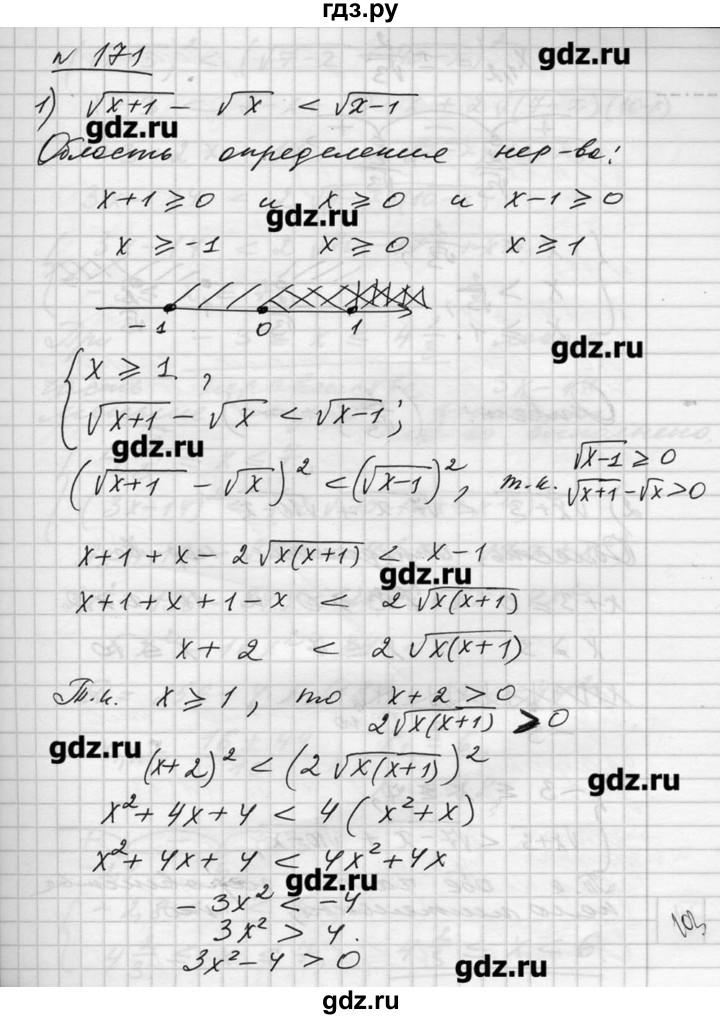 гдз.ру
№ 171
gdz.ru
1) √(x+1) - √x < √(x-1)
gdz.ru
Область определения нер-ва:
x+1 ⩾ 0 и x ⩾ 0 и x-1 ⩾ 0
gdz.ru
x ⩾ -1 x ⩾ 0 x ⩾ 1
-1 0 1
gdz.ru
{ x ⩾ 1,
√(x+1) - √x < √(x-1);
gdz.ru
(√(x+1) - √x)² < (√(x-1))², т.к. √(x-1) ⩾ 0
√(x+1) - √x > 0
x+1+x-2√(x(x+1)) < x-1
gdz.ru
x+1+x+1-x < 2√(x(x+1))
x+2 < 2√(x(x+1))
Т.к. x ⩾ 1, то x+2 > 0
2√(x(x+1)) > 0
gdz.ru
(x+2)² < (2√(x(x+1)))²
gdz.ru
x²+4x+4 < 4(x²+x)
x²+4x+4 < 4x²+4x
gdz.ru
-3x² < -4
3x² > 4.
3x²-4 > 0
103
gdz.ru
gdz.ru